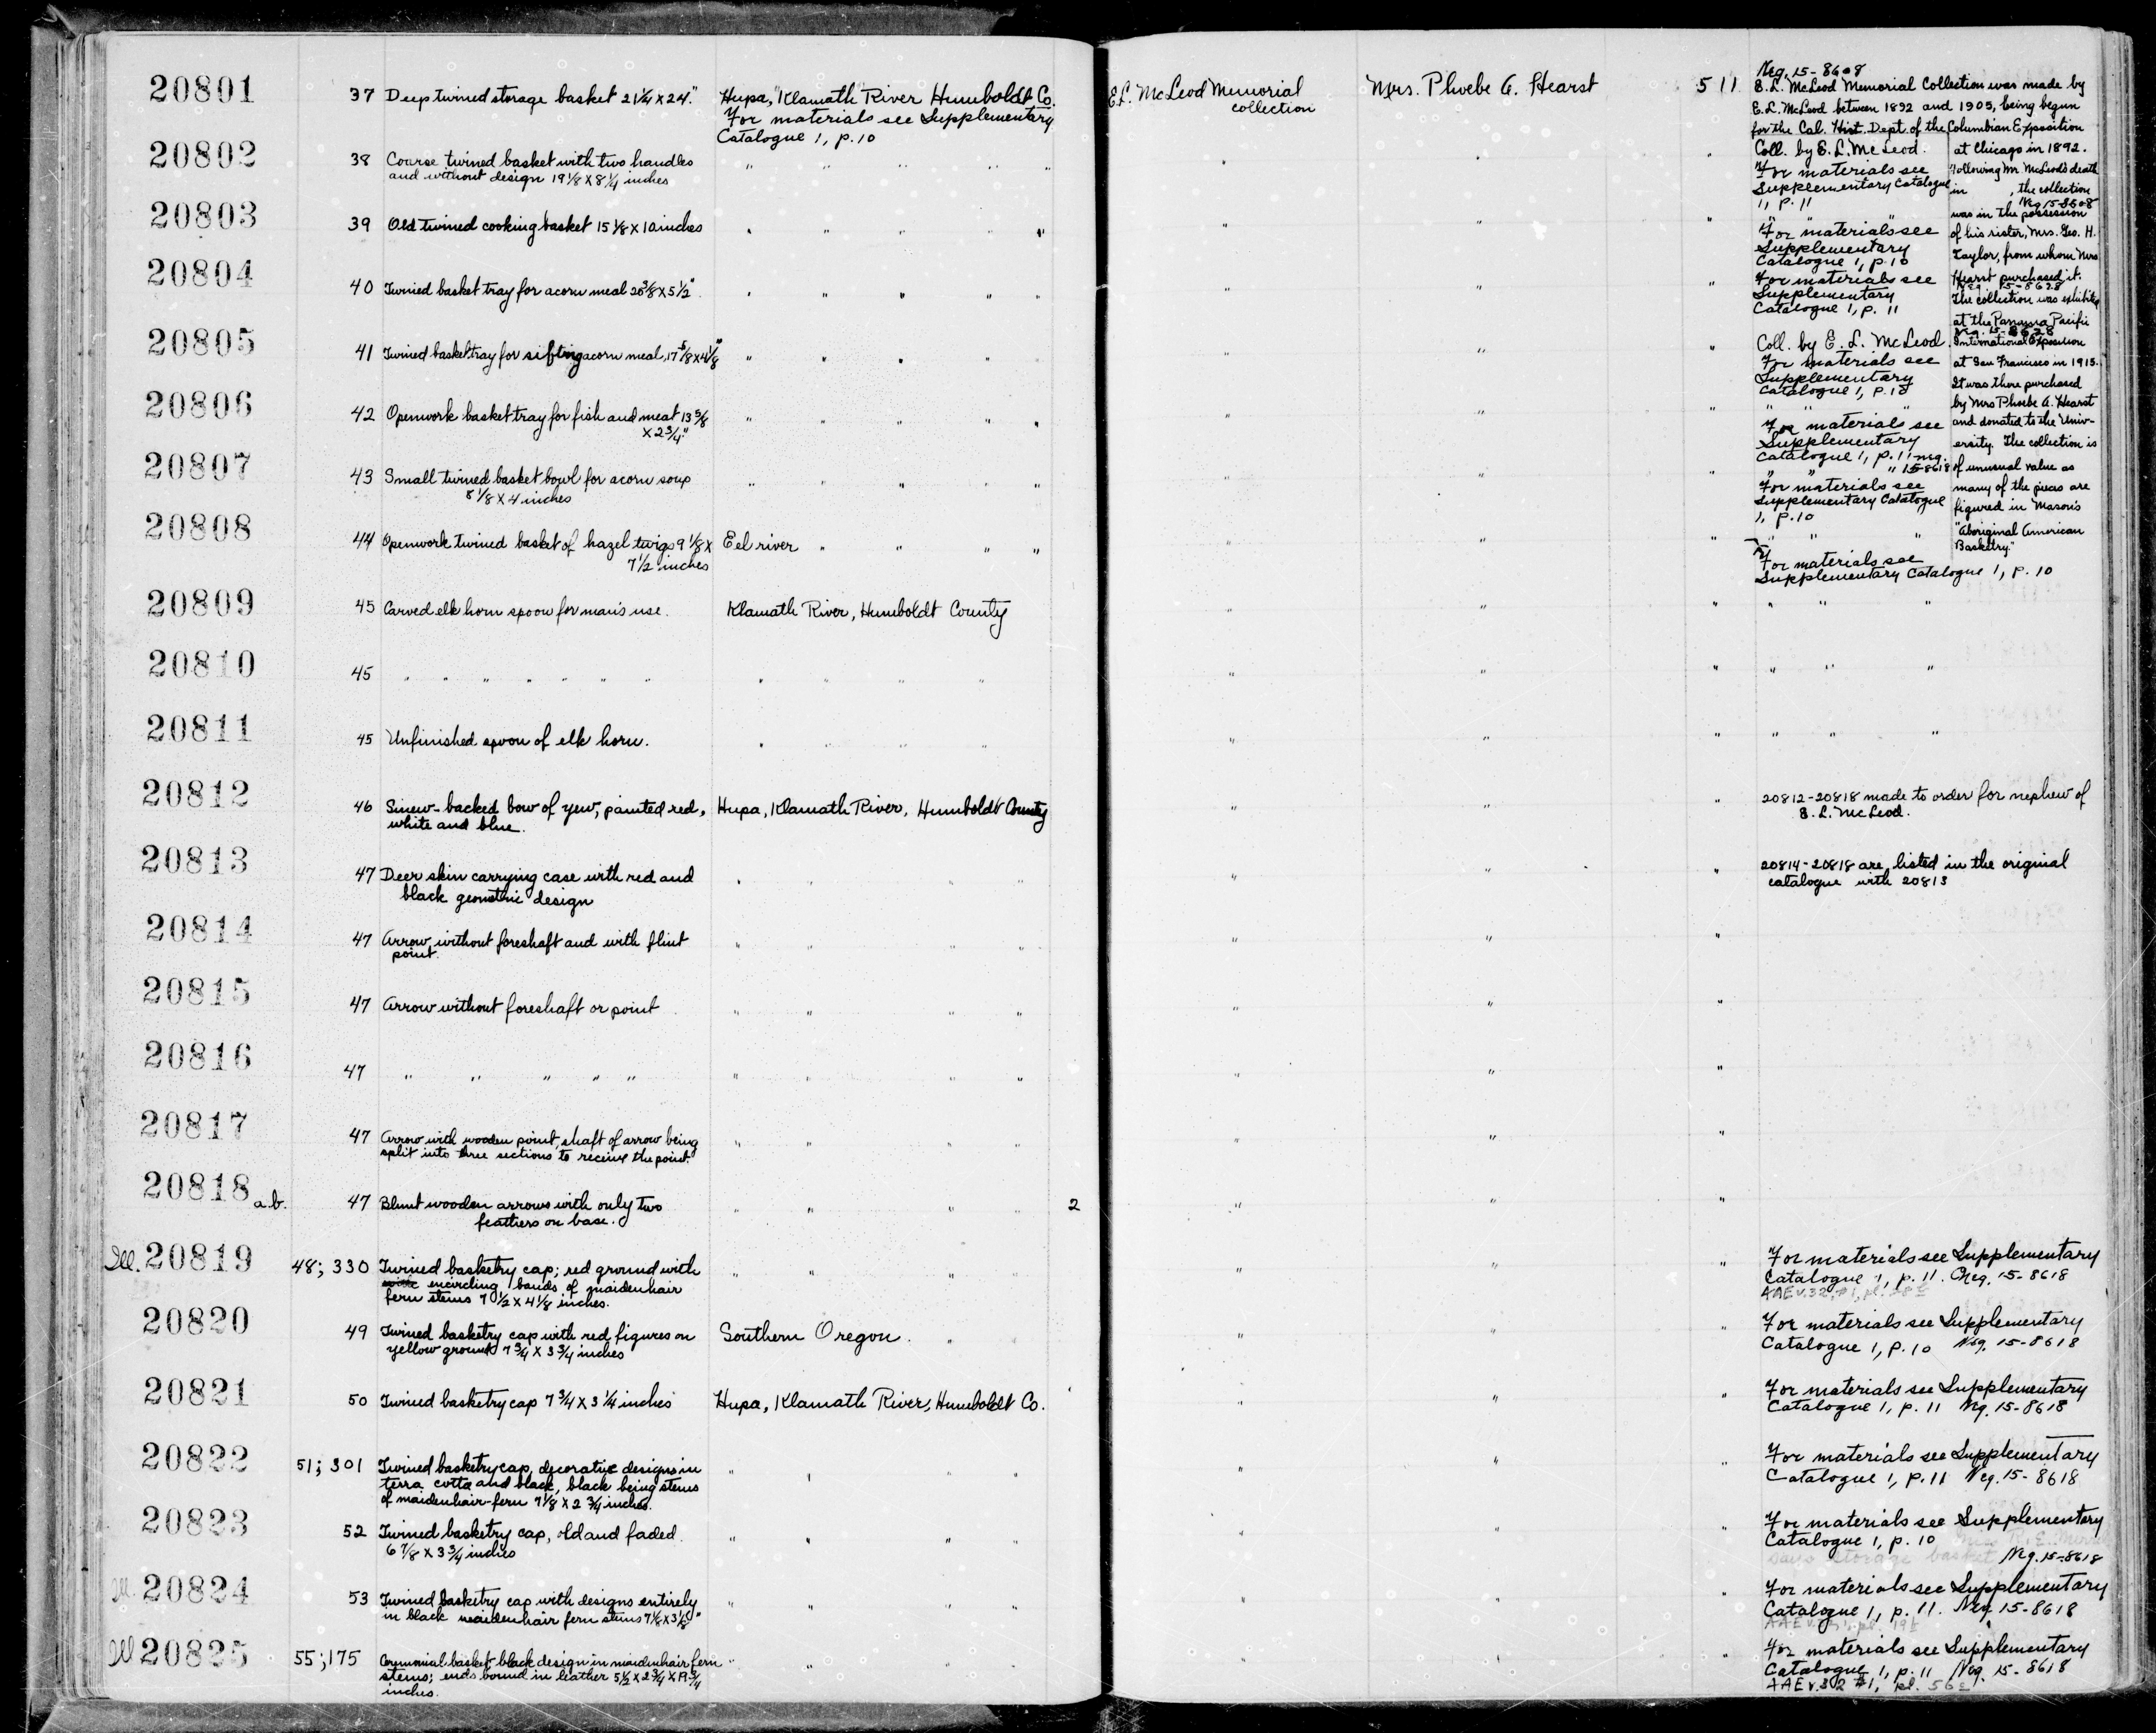 20801 37 Deep twined storage basket 21 1/4 X 24". Hupa, Klamath River Humboldt Co. E.L. McLeod Memorial Mrs. Phoebe A. Hearst 511
For materials see Supplementary collection
Catalogue 1, p. 10
Neg. 15-8608
E.L. McLeod Memorial Collection was made by
E.L. McLeod between 1892 and 1905, being begun
for the Cal. Hist. Dept. of the Columbian Exposition
at Chicago in 1892.
Following Mr. McLeod's death
in , the collection
Neg 15-8608
was in the possession
of his sister, Mrs. Geo. H.
Taylor, from whom Mrs
Hearst purchased it.
The collection was exhibited
at the Panama Pacific
Neg. 15-8628
International Exposition
at San Francisco in 1915.
It was there purchased
by Mrs Phoebe A. Hearst
and donated to the Univ-
ersity. The collection is
of unusual value as
many of the pieces are
figured in Mason's
"Aboriginal American
Basketry."
20802 38 Coarse twined basket with two handles " " " " " " " "
and without design 19 1/8 X 8 1/4 inches
Coll. by E. L. McLeod.
For materials see
Supplementary Catalogue
1, p. 11
20803 39 Old twined cooking basket 15 1/8 X 10 inches " " " " " " " "
" " "
For materials see
Supplementary
Catalogue 1, p. 10
20804 40 Twined basket tray for acorn meal 20 3/8 X 5 1/2" " " " " " " " "
For materials see
Supplementary
Catalogue 1, p. 11
20805 41 Twined basket tray for sifting acorn meal, 17 5/8 X 4 1/8" " " " " " " "
Coll. by E. L. McLeod.
For materials see
Supplementary
Catalogue 1, p. 10
20806 42 Openwork basket tray for fish and meat 13 5/8 " " " " " " " "
X 2 3/4"
" " "
For materials see
Supplementary
Catalogue 1, p. 11 neg.
15-8618
20807 43 Small twined basket bowl for acorn soup " " " " " " " "
8 1/8 X 4 inches
" " "
For materials see
Supplementary Catalogue
1, p. 10
20808 44 Openwork twined basket of hazel twigs 9 1/8 X Eel river " " " " " " "
7 1/2 inches
" " "
For materials see
Supplementary Catalogue 1, p. 10
20809 45 Carved elk horn spoon for man's use. Klamath River, Humboldt County " " " " " "
20810 45 " " " " " " " " " " " " " " " " "
20811 45 Unfinished spoon of elk horn. " " " " " " " " " "
20812 46 Sinew-backed bow of yew, painted red, Hupa, Klamath River, Humboldt County " " " 20812-20818 made to order for nephew of
white and blue. E. L. McLeod.
20813 47 Deer skin carrying case with red and " " " " " " " 20814-20818 are listed in the original
black geometric design catalogue with 20813
20814 47 Arrow, without foreshaft and with flint " " " " " " "
point.
20815 47 Arrow without foreshaft or point " " " " " " "
20816 47 " " " " " " " " " " " "
20817 47 Arrow with wooden point, shaft of arrow being " " " " " " "
split into three sections to receive the point.
20818 a.b. 47 Blunt wooden arrows with only two " " " " 2 " " "
feathers on base.
Ill. 20819 48; 330 Twined basketry cap; red ground with " " " " " " " For materials see Supplementary
encircling bands of maidenhair Catalogue 1, p. 11. Neg. 15-8618
fern stems 7 1/2 X 4 1/8 inches.
20820 49 Twined basketry cap with red figures on Southern Oregon. " " " " For materials see Supplementary
yellow ground 7 3/4 X 3 3/4 inches Catalogue 1, p. 10 Neg. 15-8618
20821 50 Twined basketry cap 7 3/4 X 3 1/4 inches Hupa, Klamath River, Humboldt Co. " " " For materials see Supplementary
Catalogue 1, p. 11 Neg. 15-8618
20822 51; 301 Twined basketry cap, decorative designs in " " " " " " " For materials see Supplementary
terra cotta and black, black being stems Catalogue 1, p. 11 Neg. 15-8618
of maidenhair-fern 7 1/8 X 2 3/4 inches.
20823 52 Twined basketry cap, old and faded. " " " " " " " For materials see Supplementary
6 7/8 X 3 3/4 inches Catalogue 1, p. 10
says storage basket Neg. 15-8618
Ill 20824 53 Twined basketry cap with designs entirely " " " " " " " For materials see Supplementary
in black maidenhair fern stems 7 1/8 X 3 1/8" Catalogue 1, p. 11. Neg. 15-8618
Ill 20825 55; 175 Ceremonial basket black design in maidenhair fern " " " " " " " For materials see Supplementary
stems; ends bound in leather 5 1/2 X 2 3/4 X 19 3/4 Catalogue 1, p. 11 Neg. 15-8618
inches. AAE v.32 #1, pl. 56